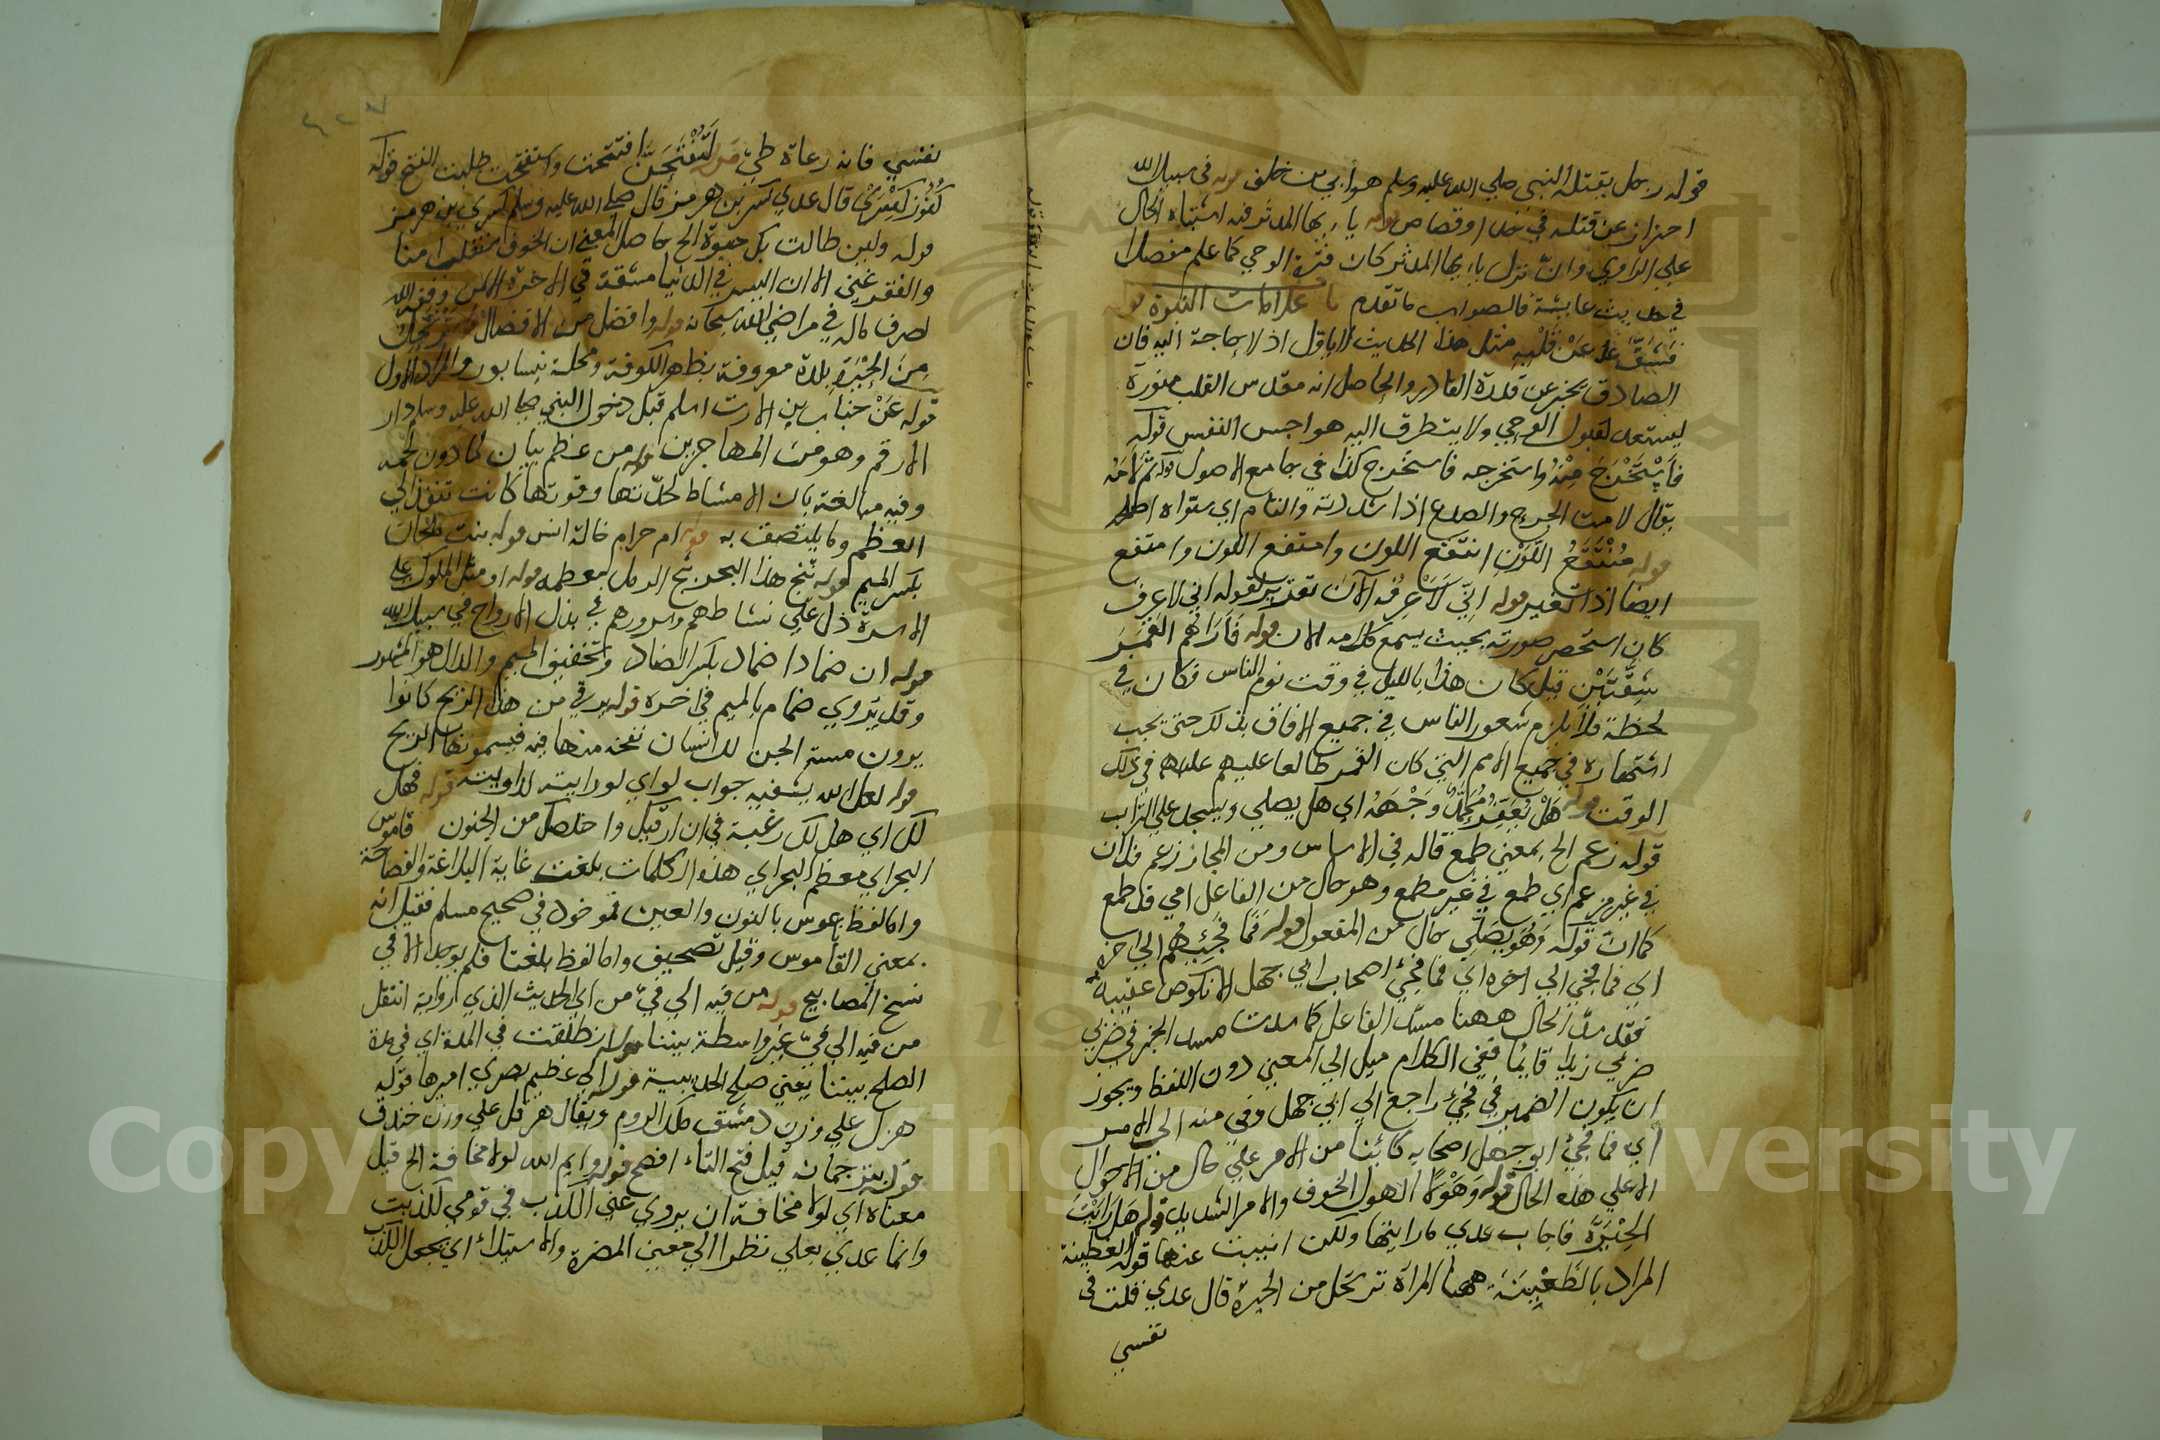 قوله رجل يقتله النبي صلي الله عليه وسلم هو أبي بن خلف قوله في سبيل الله
احتراز عن قتله في حد او قصاص قوله يا ايها المدثر فيه اشتباه الحال
علي الراوي وان نزل يا ايها المدثر كان فترة الوحي كما علم مفصلا
في حديث عايشة فالصواب ما تقدم باب علامات النبوة قوله
فَشَقَّ عَنْ قَلْبِهِ مثل هذا الحديث لا ياول اذ لا حاجة اليه فان
الصادق يخبر عن قدرة القادر والحاصل انه مقدس القلب منورة
ليستعد لقبول الوحي ولا يتطرق اليه هواجس النفس قوله
فَاسْتَخْرَجَ مِنْهُ واستخرجه فاستخرج كذا في جامع الاصول قوله ثم لَأَمَهُ
يقال لامت الجرح والصدع اذا شددته والتام اي ستواه اصلحه
قوله مُنْتَقِعُ اللَّوْنِ انتقع اللون وامتقع اللون وامتقع
ايضا اذا تغير قوله اِنِّي لَاَعْرِفُه الْآنَ تقدير لقوله اني لاعرف
كان استحضر صورته بحيث يسمع كلامه الان قوله فَاَرَاهُم القَمَرَ
شِقَّتَيْنِ قيل كان هذا بالليل في وقت نوم الناس فكان في
لحظة فلا يلزم شعور الناس في جميع الافاق بذلك حتي يجب
اشتهاره في جميع الامم التي كان القمر طالعا عليهم عليهم في ذلك
الوقت قوله هَلْ يُعَفِّرُ مُحَمَّدٌ وَجْهَهُ اي هل يصلي ويسجد علي التراب
قوله زعم الح بمعني طمع قاله في الاساس ومن المجاز زعم فلان
في غير مزعم اي طمع في غير مطمع وهو حال من الفاعل امي قد طمع
كما ان قوله وَهُوَ يُصَلِّي حال من المفعول قوله فَمَا فَجِئَهُم الي اخره
اي فما فجي الي اخره اي فما فجئ اصحاب ابي جهل الا نكوص عقبيه
فقد سد الحال ههنا مسد الفاعل كما سدت مسد الخبر في ضربي
ضربي زيدا قايما ففي الكلام ميل الي المعني دون اللفظ ويجوز
ان يكون الضمير في فجئ راجع الي ابي جهل وفي منه الي الامر
اي فما فجئ ابو جهل اصحابه كائنا من الامر علي حال من الاحوال
الا علي هذه الحال قوله وَهَوْلًا الهول الخوف والامر الشديد قوله هل رَأَيْتَ
الحِيْرَة فاجاب عدي ما رايتها ولكن انبيت عنها قوله الظعينة
المراد بالظَّعِيْنَة ههنا المرأة ترتحل من الحيرة قال عدي قلت في
نفسي
نفسي فاين دعاة طيّ قوله لَتُفْتَحَنَّ افتتحت واستفتحت طلبت الفتح قوله
كُنُوْزَ كِسْرَى قال عدي كسري بن هرمز قال صلي الله عليه وسلم كسري بن هرمز
قوله ولين طالت بكل حيوة الح حاصل المعني ان الخوف منقلب امنا
والفقر غني الا ان اليسر في الدنيا مشقة في الاخرة الا لمن وفق الله
لصرف ماله في مراضي الله سبحانه قوله وافضل من الافضال قوله تَرْتَحِلُ
مِنَ الحِيْرَةِ بلدة معروفة بظهر الكوفة ومحلة بنيسابور والمراد الاول
قوله عَنْ خباب بن الارت اسلم قبل دخول النبي صلي الله عليه وسلم دار
الارقم وهو من المهاجرين قوله من عظم بيان لما دون لحمه
وفيه مبالغة بان الامشاط لحدّتها وقوتها كانت تنفذ الي
العظم وما يلتصق به قوله ام حرام خالة انس قوله بنت ملحان
بكسر الميم قوله ثبج هذا البحر ثبج الرمل معظمه قوله او مثل الملوك علي
الاسرة دل علي نشاطهم وسرورهم في بذل الارواح في سبيل الله
قوله ان ضمادا ضماد بكسر الضاد وتخفيف الميم والدال هو المشهور
وقد يروي ضمام بالميم في اخره قوله يرقي من هذا الريح كانوا
يرون مسته الجن للانسان نفخه منها فيه فيسمونها الريح
قوله لعل الله يشفيه جواب لو اي لو رايته لداويته قوله فهل
لك اي هل لك رغبة في ان ارقيك واخلصك من الجنون قاموس
البحر اي معظم البحر اي هذه الكلمات بلغت غاية البلاغة والفصاحة
واما لفظ بعوس بالنون والعين فموخود في صحيح مسلم فقيل انه
بمعني القاموس وقيل تصحيف واما لفظ بلغنا فلم يوجد الا في
نسخ المصابيح قوله من فيه الي فيّ من اي الحديث الذي ارويه انتقل
من فيه الي فيّ بغير واسطة بيننا قوله انطلقت في المدة اي في مدة
الصلح بيننا يعني صلح الحديبية قوله الي عظيم بصري اميرها قوله
هرقل علي وزن دمشق ملك الروم ويقال هرقل علي وزن خندق
قوله بترجمانه قيل فتح التاء افصح قوله وايم الله لولا مخافة الح قيل
معناه اي لولا مخافة ان يروي عني الكذب في قومي لكذبت
وانما عدي بعلي نظرا الي معني المضرة والاستيلاء اي يجعل الكذب
Copyright © King Saud University